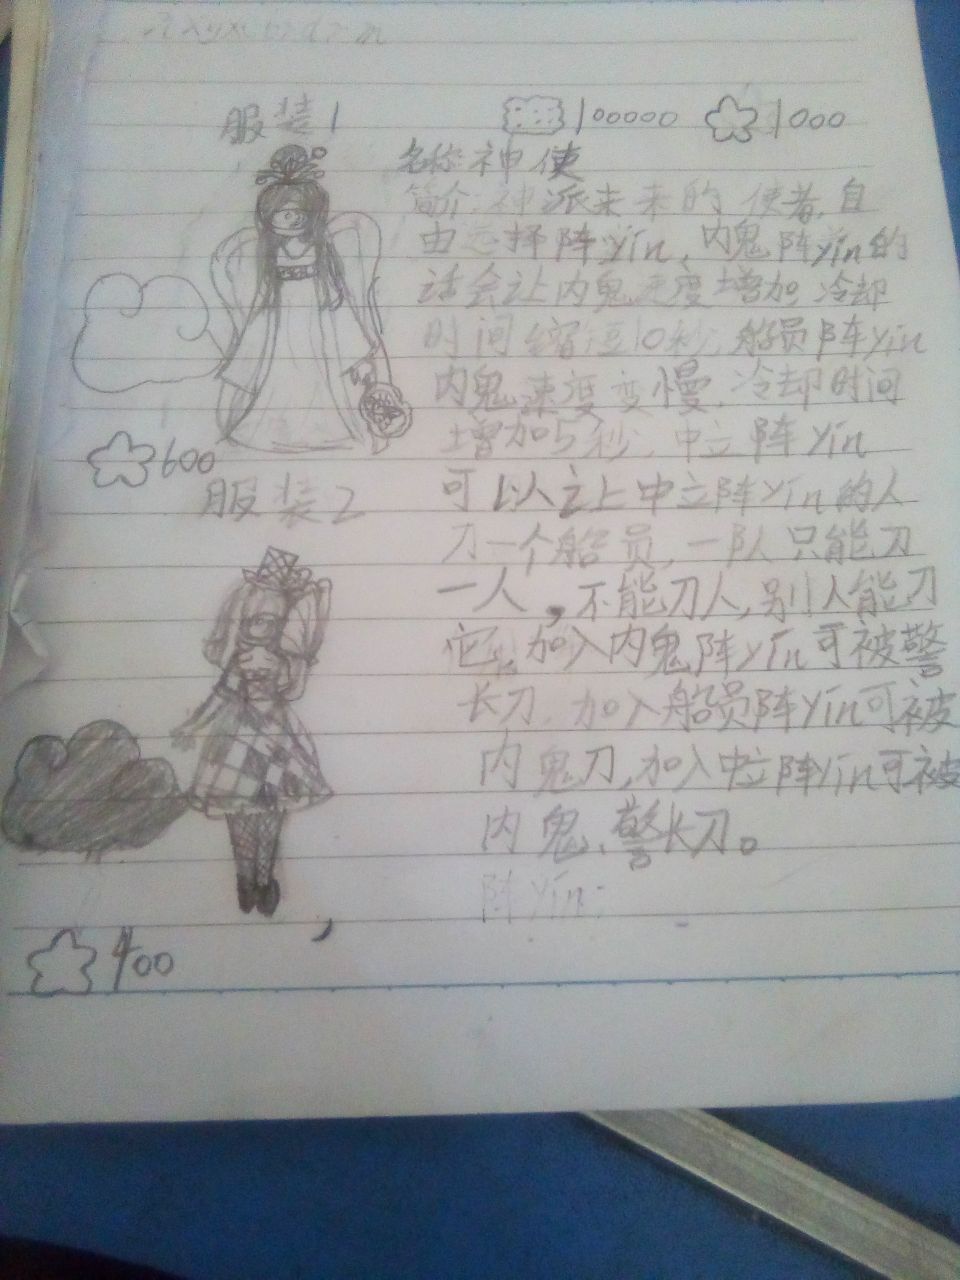 服装1
100000 1000
名称:神使
简介:神派来来的使者,自
由选择阵yin,内鬼阵yin的
话会让内鬼速度增加,冷却
时间缩短10秒,船员阵yin
内鬼速度变慢,冷却时间
增加5秒,中立阵yin
可以之上中立阵yin的人
刀一个船员,一队只能刀
一人,不能刀人,别人能刀
它,加入内鬼阵yin可被警
长刀,加入船员阵yin可被
内鬼刀,加入中立阵yin可被
内鬼、警长刀。
阵yin:
600
服装2
400